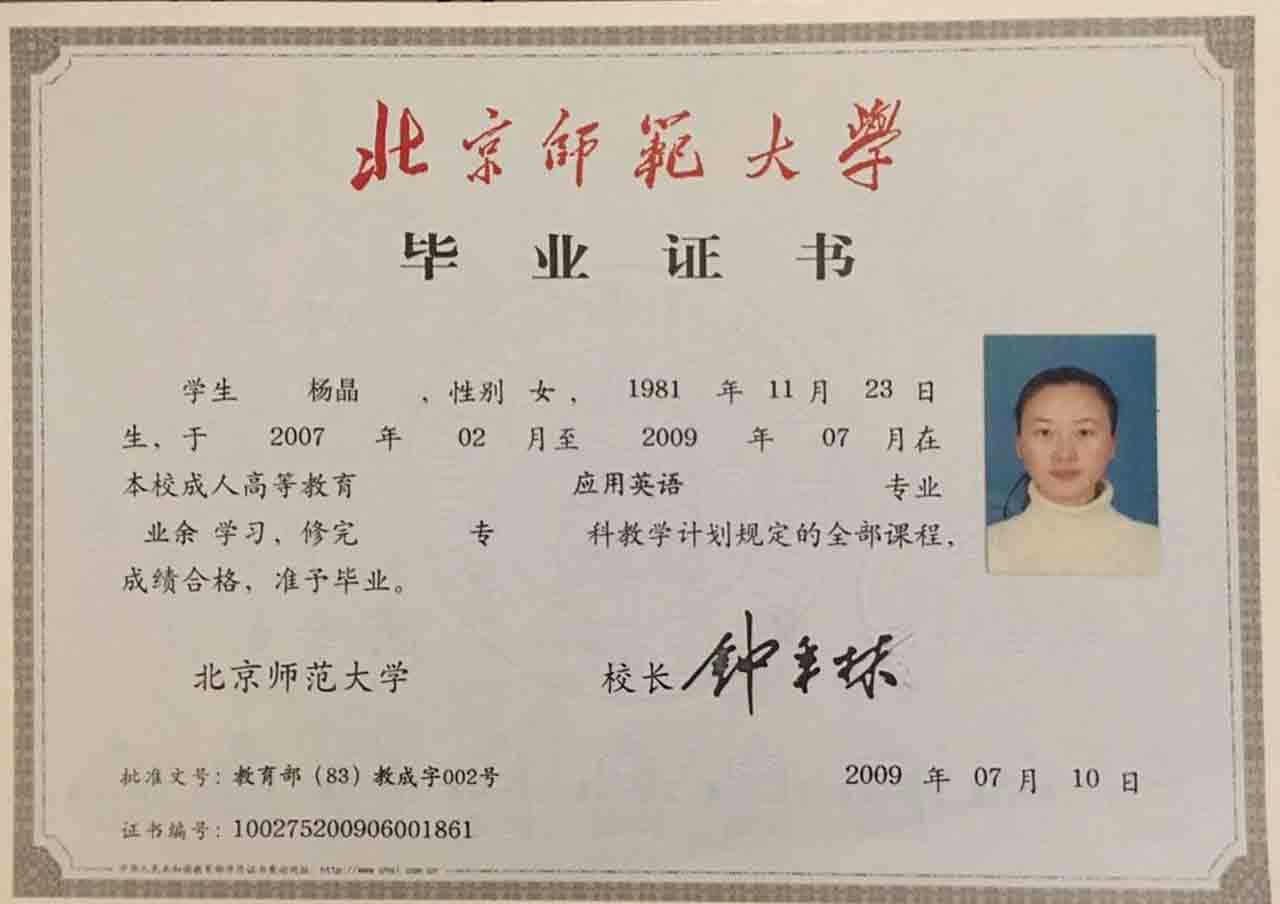 北京師範大學
毕业证书
学生 杨晶 ，性别 女， 1981 年 11 月 23 日
生，于 2007 年 02 月至 2009 年 07 月在
本校成人高等教育 应用英语 专业
业余 学习，修完 专 科教学计划规定的全部课程，
成绩合格，准予毕业。
北京师范大学 校长 钟秉林
批准文号：教育部（83）教成字002号 2009 年 07 月 10 日
证书编号：100275200906001861
中华人民共和国教育部学历证书查询网址：http://www.chsi.com.cn